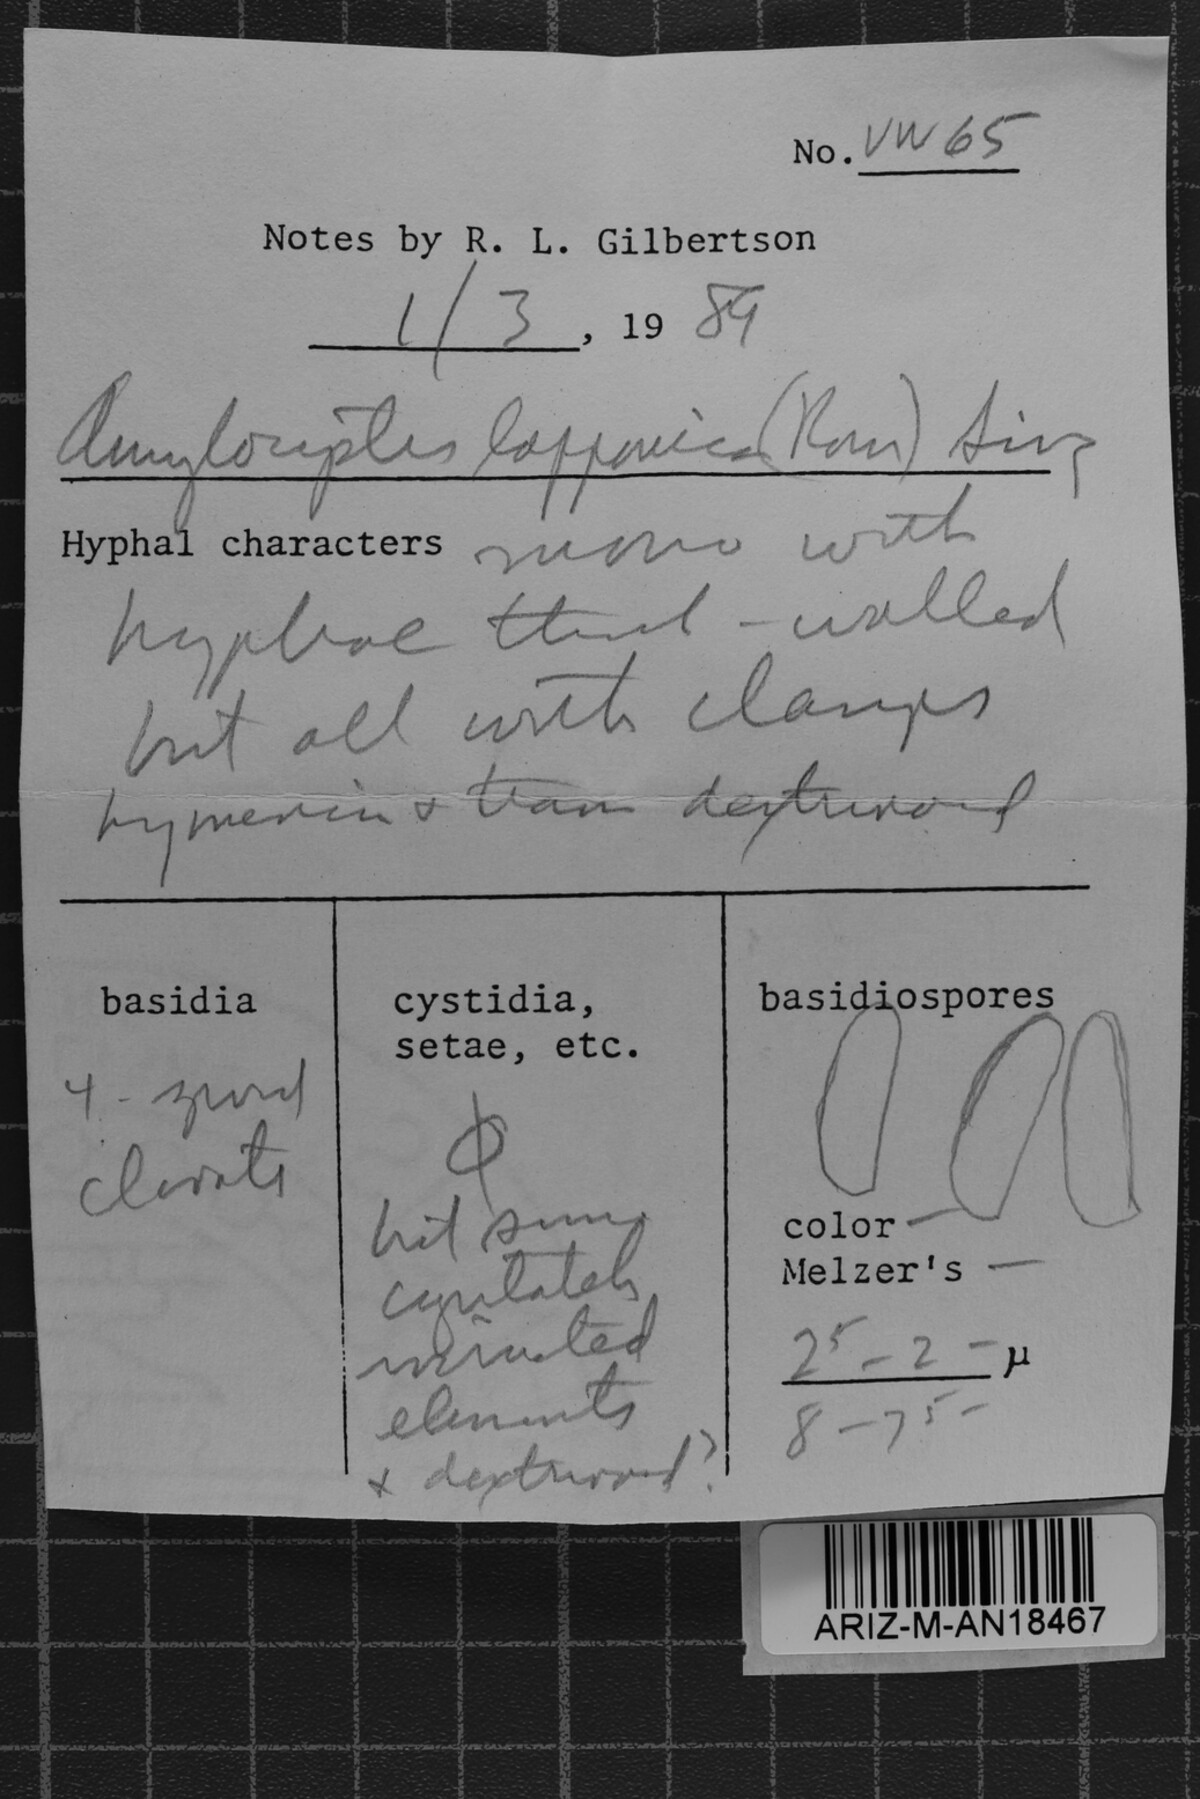 No. VW65
Notes by R. L. Gilbertson
1/3, 19 89
Amylocystis lapponica (Rom) Sing
Hyphal characters mono with
hyphae thick-walled
but all with clamps
hymenium & tram dextrinoid
basidia
4-spored
clavate
cystidia,
setae, etc.
ϕ
but some
apically
encrusted
elements
+ dextrinoid?
basidiospores
color —
Melzer's —
25 - 2 - µ
8 - 75 -
ARIZ-M-AN18467